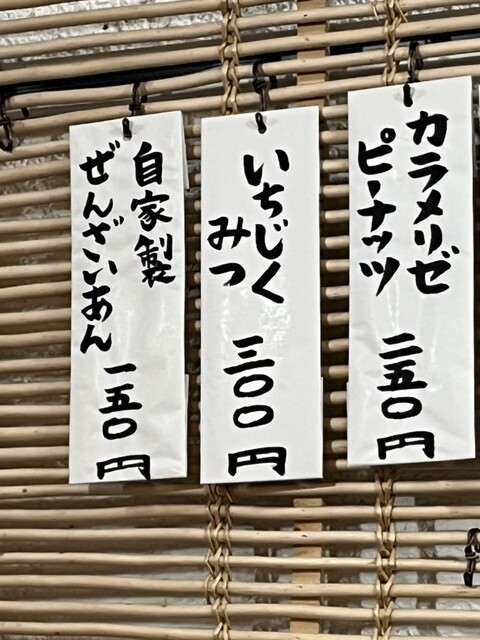 カラメリゼ
ピーナッツ
二五〇円
いちじく
みつ
三〇〇円
自家製
ぜんざいあん
一五〇円